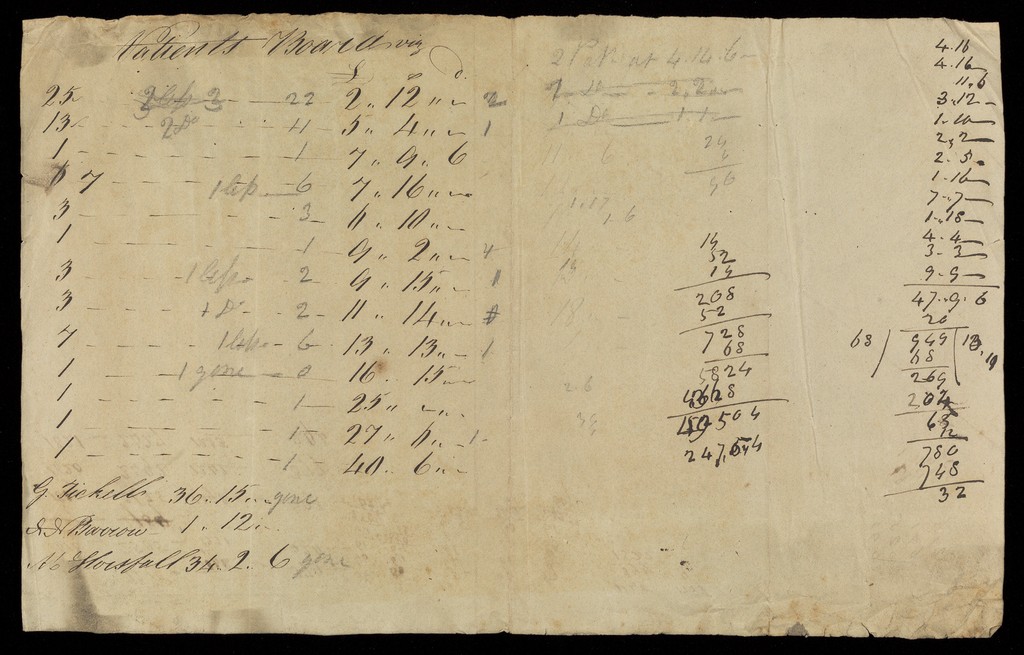 Patients Board viz
£ s d
25 3 less 3 22 2 " 12 " - 2
13 2 Do 11 5 " 4 " - 1
1 - - - - 1 7 " 9 " 6
7 - - - 1 less 6 7 " 16 " -
3 - - - - 3 11 " 10 " -
1 - - - - 1 9 " 2 " - 4
3 - - 1 less 2 9 " 15 " -
3 - - 1 Do 2 11 " 14 " -
7 - - 1 less 6 13 " 13 " - 1
1 - - 1 gone 0 16 " 15 " -
1 - - - - 1 25 " - " -
1 - - - - 1 27 " 6 " - 1
1 - - - - 1 40 " 6 " -
G. Tickell 36 . 15 . - gone
Barrow 1 . 12 . -
Horsfall 34 . 2 . 6 gone
2 at 4.14.6
2 Do - 2.2
1 Do - 1.1
11 6
24
96
11.17.6
18
26
34
14
52
14
208
52
728
68
5824
4368
49504
247
4.16
4.16
11.6
3.12 -
1.10 -
2.2 -
2.5 .
1.16 -
7.7 -
1.18 -
4.4 -
3.3 -
9.9 -
47.9.6
20
68 / 949 | 13
68
269
204
65
12
780
748
32